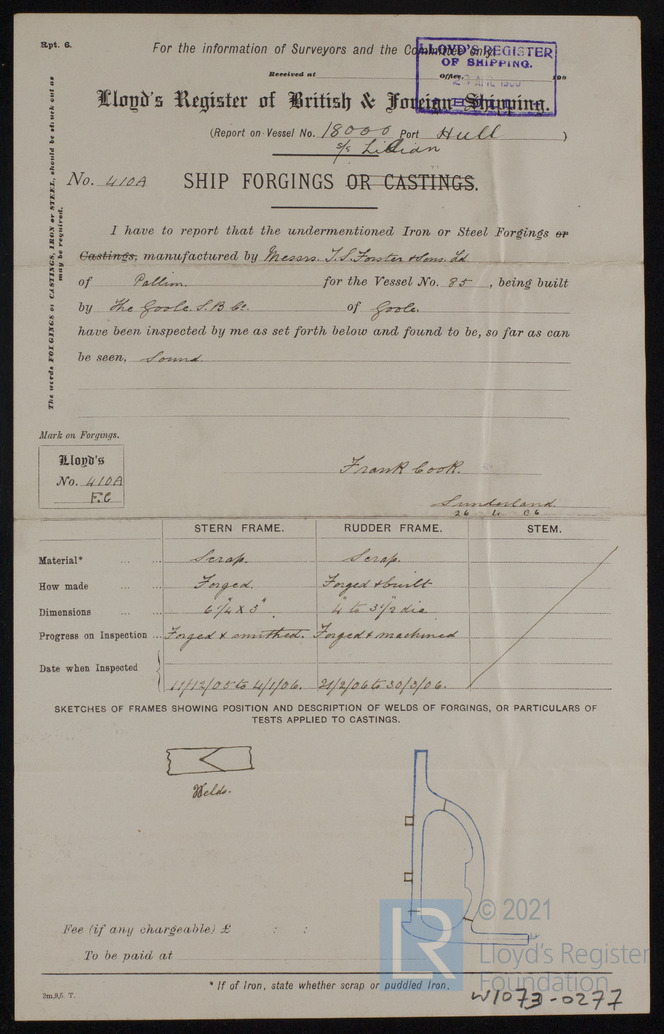 Rpt. 6.
For the information of Surveyors and the Committee only.
LLOYD'S REGISTER
OF SHIPPING.
Received at Office, 190
Lloyd's Register of British & Foreign Shipping.
(Report on Vessel No. 18000 Port Hull )
s/s Lilian
No. 410A SHIP FORGINGS OR CASTINGS.
The words FORGINGS or CASTINGS, IRON or STEEL, should be struck out as
may be required.
I have to report that the undermentioned Iron or Steel Forgings or
Castings, manufactured by Messrs. T. S. Forster & Sons. Ld
of Pallion. for the Vessel No. 85 , being built
by The Goole S. B. Co. of Goole.
have been inspected by me as set forth below and found to be, so far as can
be seen, Sound.
Mark on Forgings.
Lloyd's
No. 410A
F.C
Frank Cook.
Sunderland.
26 4 06
STERN FRAME. RUDDER FRAME. STEM.
Material* ... ... Scrap. Scrap.
How made ... ... Forged. Forged & built
Dimensions ... ... 6¼ x 3" 4" to 3½" dia
Progress on Inspection ... Forged & smithed. Forged & machined
Date when Inspected 11/12/05 to 4/1/06. 21/2/06 to 30/3/06.
SKETCHES OF FRAMES SHOWING POSITION AND DESCRIPTION OF WELDS OF FORGINGS, OR PARTICULARS OF
TESTS APPLIED TO CASTINGS.
Welds.
Fee (if any chargeable) £ : :
To be paid at
* If of Iron, state whether scrap or puddled Iron.
2m.9,5. T.
LR
© 2021
Lloyd's Register
Foundation
W1073-0277